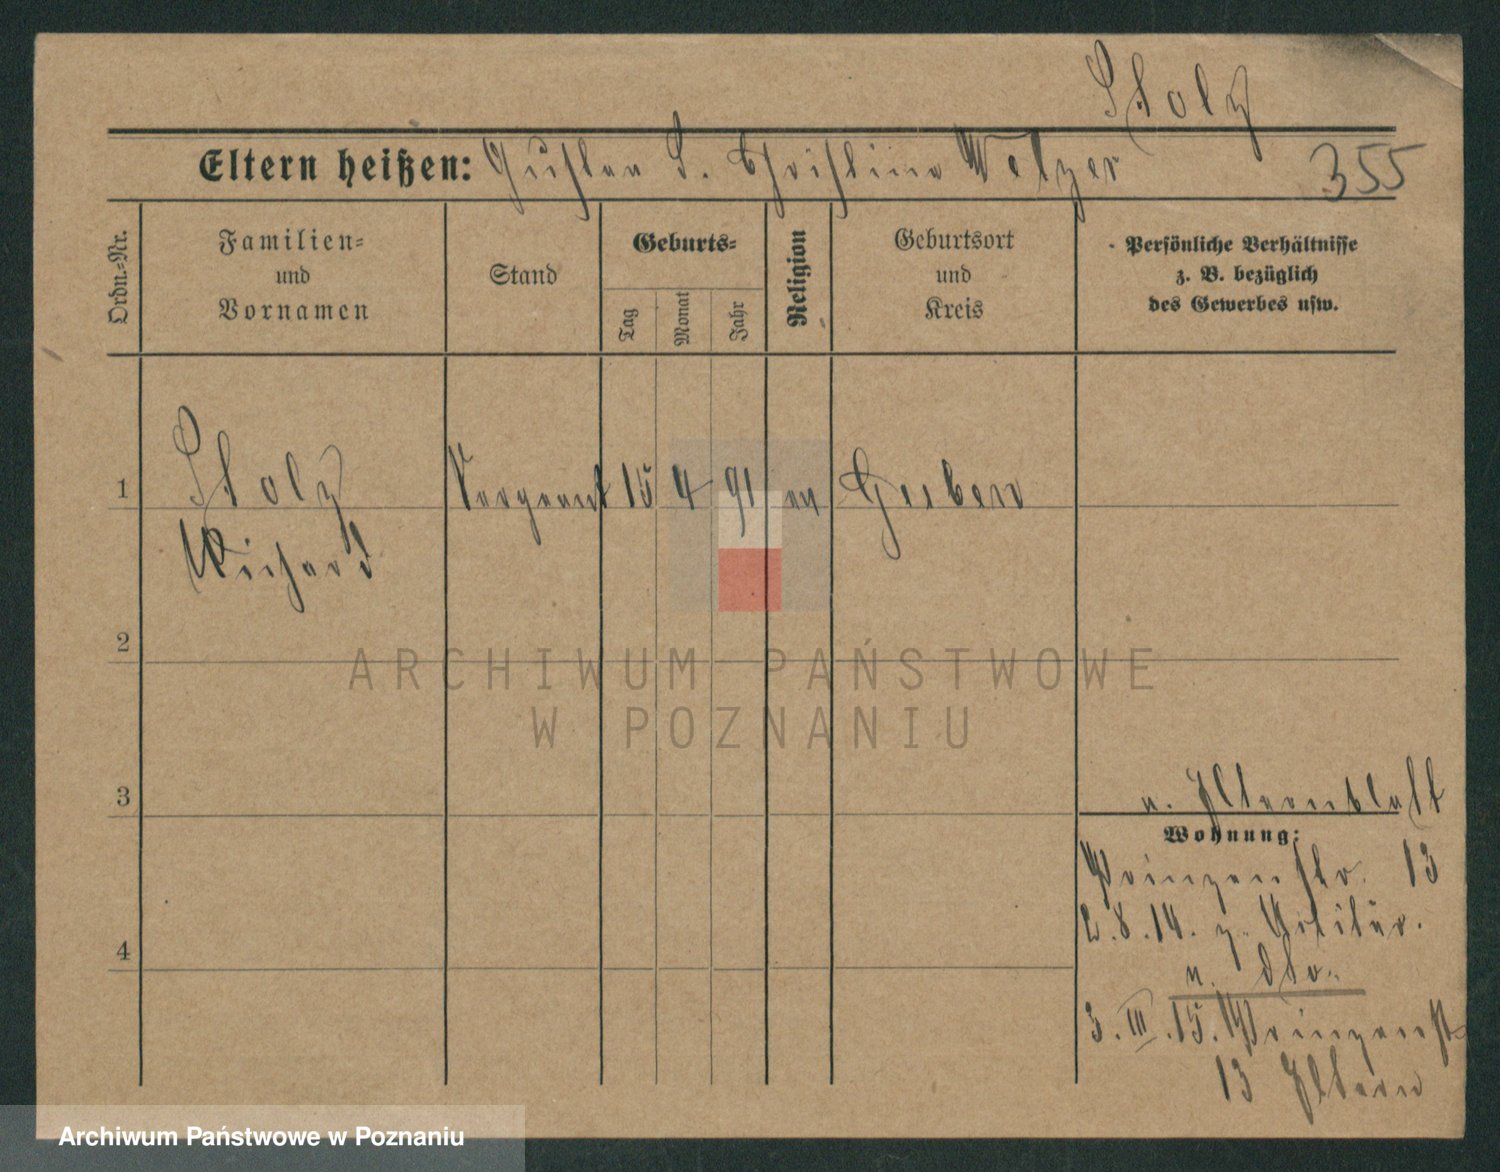 Stolz
Eltern heißen: Gustav u. Christine Melzer
355
Ordn.-Nr.
Familien-
und
Vornamen
Stand
Geburts-
Tag
Monat
Jahr
Religion
Geburtsort
und
Kreis
Persönliche Verhältnisse
z. B. bezüglich
des Gewerbes usw.
1
Stolz
Sergeant 15 4 91 ev
Richard
2
3
n. Elternblatt
Wohnung:
Prinzenstr. 13
2.8.14. z. Militär.
n. dto.
4
3.III.15. Prinzenst
13 Eltern
ARCHIWUM PAŃSTWOWE
W POZNANIU
Archiwum Państwowe w Poznaniu